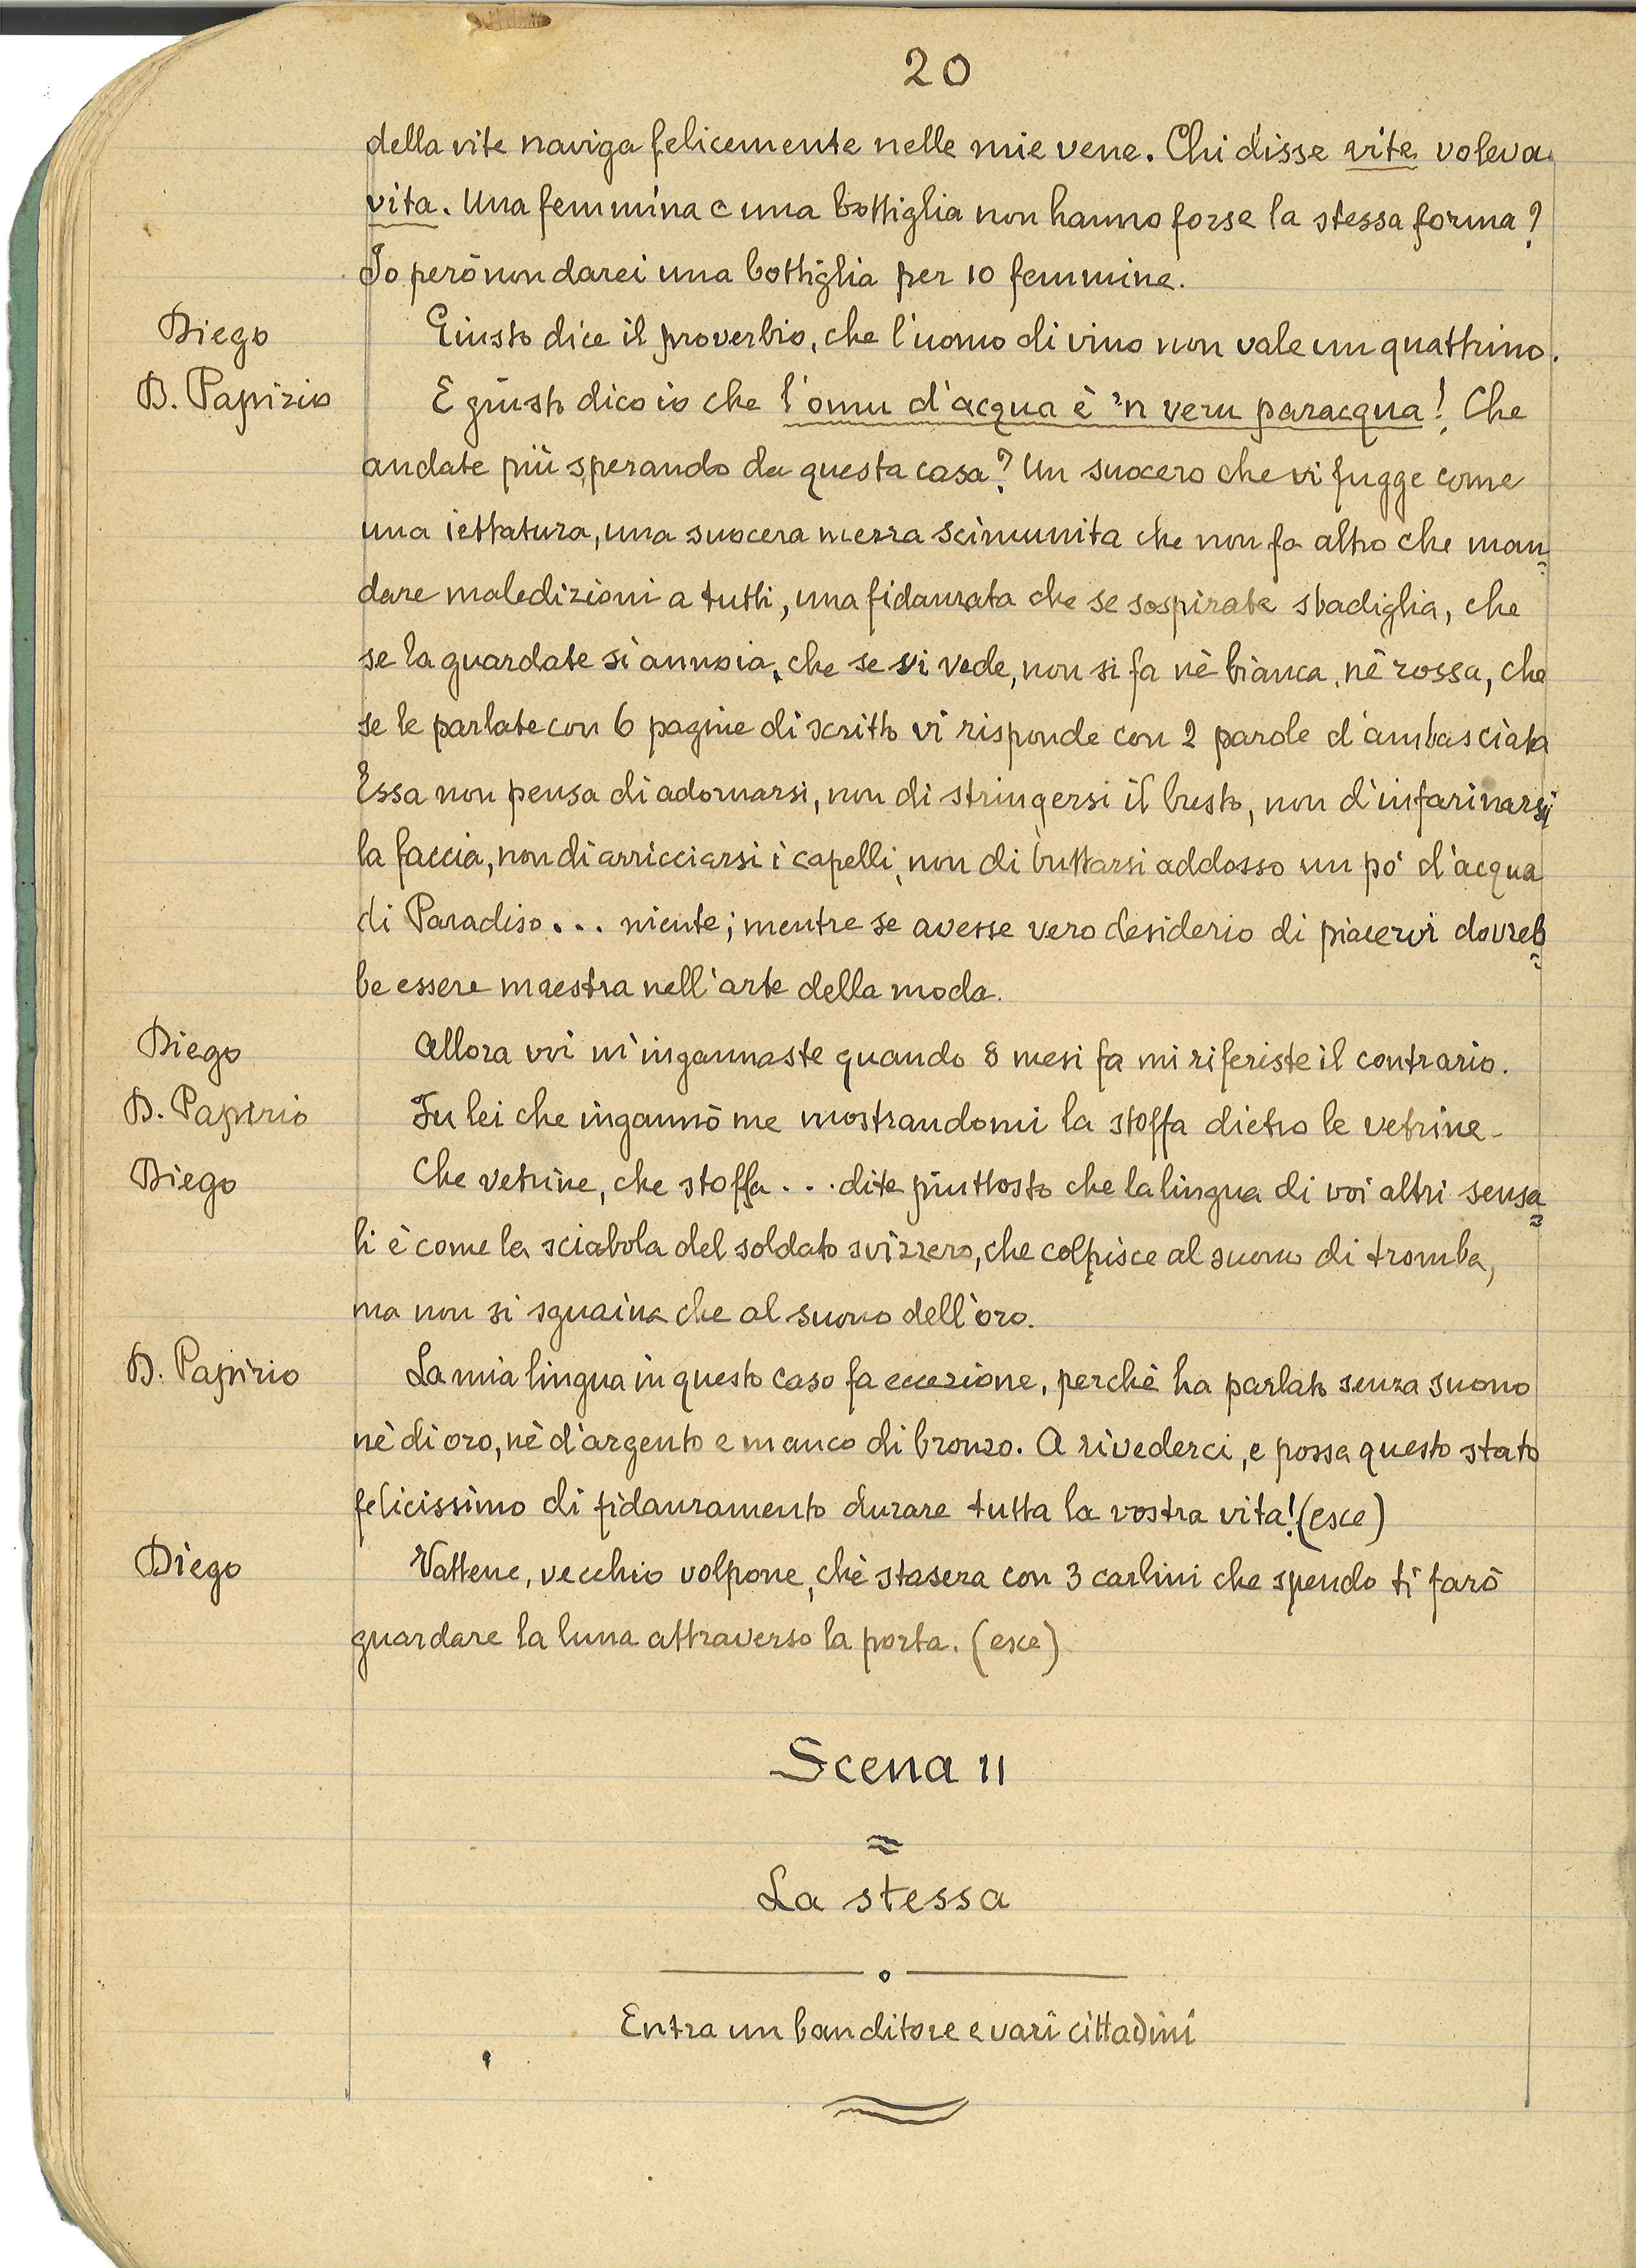 20
della vite naviga felicemente nelle mie vene. Chi disse vite voleva
vita. Una femmina e una bottiglia non hanno forse la stessa forma?
Io però non darei una bottiglia per 10 femmine.
Diego Giusto dice il proverbio, che l'uomo di vino non vale un quattrino.
D. Papirio E giusto dico io che l'omu d'acqua è 'n veru paracqua! Che
andate più sperando da questa casa? Un suocero che vi fugge come
una iettatura, una suocera mezza scimunita che non fa altro che man=
dare maledizioni a tutti, una fidanzata che se sospirate sbadiglia, che
se la guardate si annoia, che se vi vede, non si fa nè bianca, nè rossa, che
se le parlate con 6 pagine di scritto vi risponde con 2 parole d'ambasciata
Essa non pensa di adornarsi, non di stringersi il busto, non d'infarinarsi
la faccia, non di arricciarsi i capelli, non di buttarsi addosso un pò d'acqua
di Paradiso... niente; mentre se avesse vero desiderio di piacervi dovreb=
be essere maestra nell'arte della moda.
Diego Allora voi m'ingannaste quando 8 mesi fa mi riferiste il contrario.
D. Papirio Fu lei che ingannò me mostrandomi la stoffa dietro le vetrine.
Diego Che vetrine, che stoffa... dite piuttosto che la lingua di voi altri sensa=
li è come la sciabola del soldato svizzero, che colpisce al suono di tromba,
ma non si sguaina che al suono dell'oro.
D. Papirio La mia lingua in questo caso fa eccezione, perchè ha parlato senza suono
nè di oro, nè d'argento e manco di bronzo. A rivederci, e possa questo stato
felicissimo di fidanzamento durare tutta la vostra vita! (esce)
Diego Vattene, vecchio volpone, chè stasera con 3 carlini che spendo ti farò
guardare la luna attraverso la porta. (esce)
Scena 11
La stessa
Entra un banditore e vari cittadini